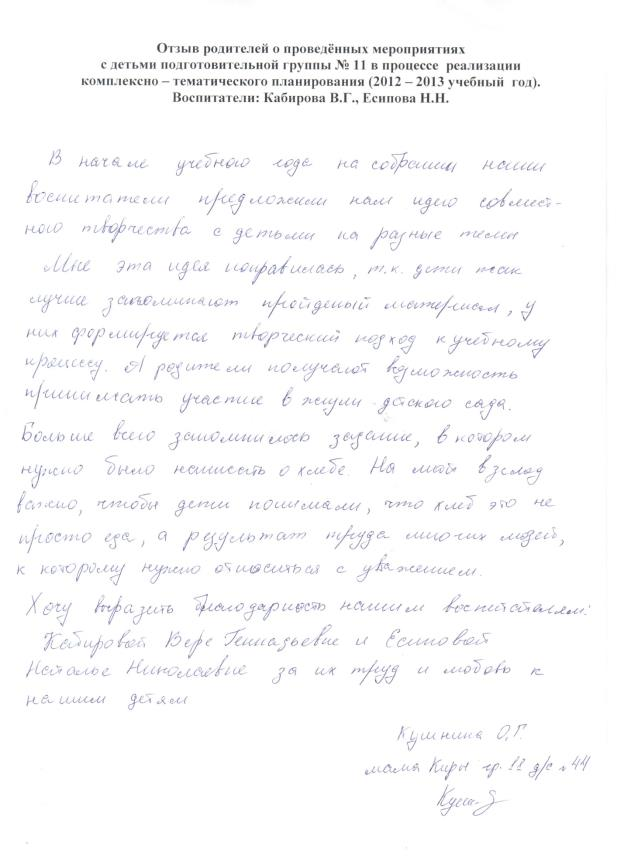 Отзыв родителей о проведённых мероприятиях
с детьми подготовительной группы № 11 в процессе реализации
комплексно – тематического планирования (2012 – 2013 учебный год).
Воспитатели: Кабирова В.Г., Есипова Н.Н.
В начале учебного года на собрании наши
воспитатели предложили нам идею совмест-
ного творчества с детьми на разные темы
Мне эта идея понравилась, т.к. дети так
лучше запоминают пройденый материал, у
них формируется творческий подход к учебному
процессу. А родители получают возможность
принимать участие в жизни детского сада.
Больше всего запомнилось задание, в котором
нужно было написать о хлебе. На мой взгляд
важно, чтобы дети понимали, что хлеб это не
просто еда, а результат труда многих людей,
к которому нужно относиться с уважением.
Хочу выразить благодарность нашим воспитателям:
Кабировой Вере Геннадьевне и Есиповой
Наталье Николаевне за их труд и любовь к
нашим детям
Кушнина О.Г.
мама Киры гр. 11 д/с №44